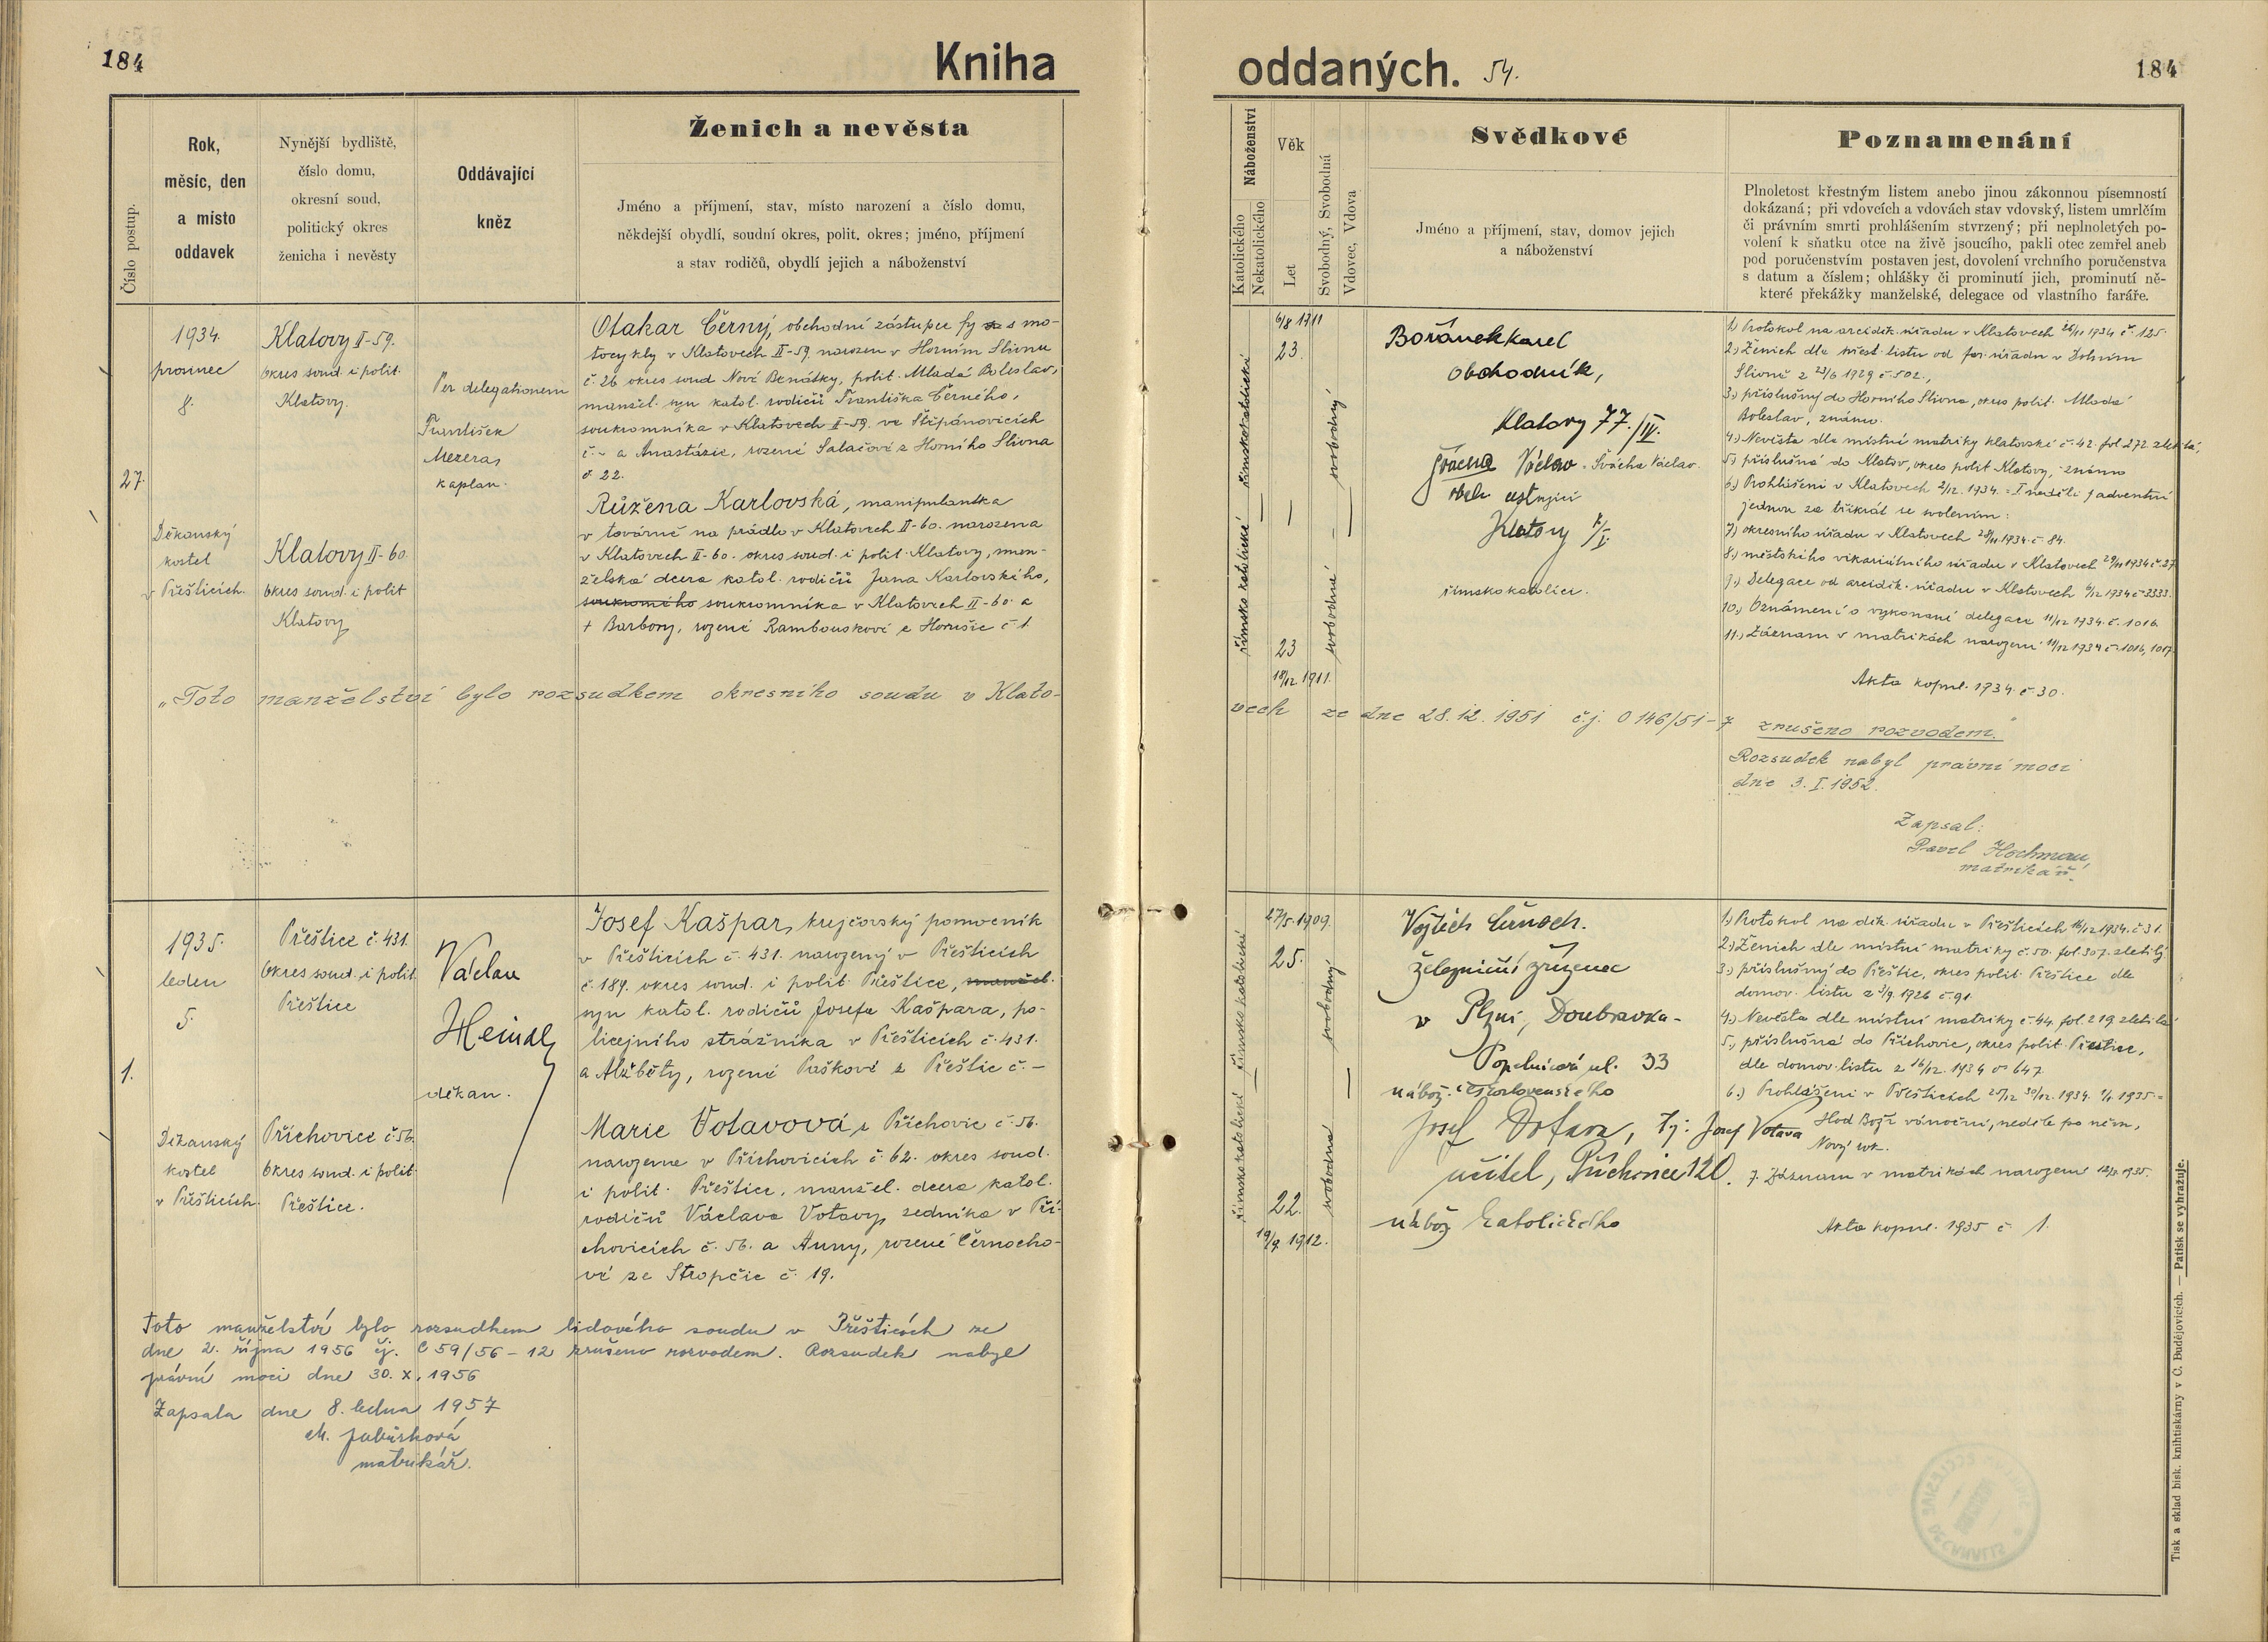 184
Kniha
oddaných. 54.
184
Číslo postup.
Rok,
měsíc, den
a místo
oddavek
Nynější bydliště,
číslo domu,
okresní soud,
politický okres
ženicha i nevěsty
Oddávající
kněz
Ženich a nevěsta
Jméno a příjmení, stav, místo narození a číslo domu,
někdejší obydlí, soudní okres, polit. okres; jméno, příjmení
a stav rodičů, obydlí jejich a náboženství
Náboženství
Katolického
Nekatolického
Věk
Let
Svobodný, Svobodná
Vdovec, Vdova
Svědkové
Jméno a příjmení, stav, domov jejich
a náboženství
Poznamenání
Plnoletost křestným listem anebo jinou zákonnou písemností
dokázaná; při vdovcích a vdovách stav vdovský, listem umrlčím
či právním smrti prohlášením stvrzený; při neplnoletých po-
volení k sňatku otce na živě jsoucího, pakli otec zemřel aneb
pod poručenstvím postaven jest, dovolení vrchního poručenstva
s datum a číslem; ohlášky či prominutí jich, prominutí ně-
které překážky manželské, delegace od vlastního faráře.
27.
1934.
prosinec
8.
Děkanský
kostel
v Přešticích.
Klatovy II-59.
okres soud. i polit.
Klatovy
Klatovy II-60.
okres soud. i polit
Klatovy
Per delegationem
František
Mezera,
kaplan.
Otakar Černý, obchodní zástupce fy s mo-
tocykly v Klatovech II-59 narozen v Horním Slivnu
č. 26 okres soud Nové Benátky, polit. Mladá Boleslav,
manžel. syn katol. rodičů Františka Černého,
soukromníka v Klatovech II-59. ve Štěpánovicích
č. - a Anastázie, rozené Salačové z Horního Slivna
č 22.
Růžena Karlovská, manipulantka
v továrně na prádlo v Klatovech II-60. narozena
v Klatovech II-60. okres soud. i polit. Klatovy, man-
želská dcera katol. rodičů Jana Karlovského,
soukromého soukromníka v Klatovech II-60. a
+ Barbory, rozené Rambouskové z Horušic č 1.
římskokatolické
římsko katolické
6/8 1911
23.
23
18/12 1911.
svobodný
svobodná
Bořánek Karel
obchodník,
Klatovy 77./IV.
Švácha Václav. Švácha Václav.
obch cestující
Klatovy
římskokatolíci.
1.) Protokol na arciděk. úřadu v Klatovech 26/11 1934 č. 125.
2.) Ženich dle křest. listu od far. úřadu v Dolním
Slivně z 23/6 1929 č. 502.,
3.) příslušný do Horního Slivna, okres polit. Mladá
Boleslav, známo.
4.) Nevěsta dle místní matriky klatovské č. 42. fol 272 zletilá,
5.) příslušná do Klatov, okres polit Klatovy, známo
6.) Prohlášeni v Klatovech 2/12. 1934. = I. neděli adventní
jednou za třikrát se svolením:
7.) okresního úřadu v Klatovech 28/11 1934. č. 84.
8.) městského vikariátního úřadu v Klatovech 29/11 1934 č. 27
9.) Delegace od arciděk. úřadu v Klatovech 6/12 1934 č 3333.
10.) Oznámení o vykonané delegace 11/12 1934. č. 1016.
11.) Záznam v matrikách narození 11/12 1934 č. 1016, 1017.
Akta kopul. 1934. č. 30.
„Toto manželství bylo rozsudkem okresního soudu v Klato-
vech ze dne 28. 12. 1951 č.j. O 146/51-7 zrušeno rozvodem.“
Rozsudek nabyl právní moci
dne 3. I. 1952.
Zapsal:
Pavel Hochman,
matrikář.
1.
1935.
leden
5.
Děkanský
kostel
v Přešticích.
Přeštice č. 431.
okres soud. i polit.
Přeštice
Příchovice č 56.
okres soud. i polit.
Přeštice.
Václav
Heindl,
děkan.
Josef Kašpar, krejčovský pomocník
v Přešticích č. 431. narozený v Přešticích
č. 189. okres soud. i polit. Přeštice, manžel.
syn katol. rodičů Josefa Kašpara, po-
licejního strážníka v Přešticích č. 431.
a Alžběty, rozené Paškové z Přeštic č. -
Marie Votavová z Příchovic č. 56.
narozena v Příchovicích č. 62. okres soud.
i polit. Přeštice, manžel. dcera katol.
rodičů Václava Votavy, sedníka v Pří-
chovicích č. 56. a Anny, rozené Černocho-
vé ze Stropčic č. 19.
římsko katolické
římsko katolické
27/5. 1909.
25.
22.
19/9. 1912.
svobodný
svobodná
Vojtěch Černoch.
železniční zřízenec
v Plzni, Doubravka-
Popelnicová ul. 33
nábož. československého
Josef Votava, Tj: Josef Votava
učitel, Příchovice 120.
nábož katolického
1.) Protokol na děk. úřadu v Přešticích 16/12 1934. č 31.
2.) Ženich dle místní matriky č. 50. fol. 307. zletilý
3.) příslušný do Přeštic, okres polit. Přeštice dle
domov. listu z 3/9. 1926 č. 91.
4.) Nevěsta dle místní matriky č. 44. fol. 219. zletilá
5.) příslušná do Příchovic, okres polit. Přeštice,
dle domov. listu z 16/12. 1934 č 647.
6.) Prohlášeni v Přešticích 25/12 30/12. 1934. 1/1 1935 =
Hod Boží vánoční, neděle po něm,
Nový rok.
7. Záznam v matrikách narození 1935.
Akta kopul. 1935 č 1.
Toto manželství bylo rozsudkem lidového soudu v Přešticích ze
dne 2. října 1956 čj. C 59/56 - 12 zrušeno rozvodem. Rozsudek nabyl
právní moci dne 30. X. 1956
Zapsala dne 8. ledna 1957
matrikář.
Tisk a sklad bisk. knihtiskárny v Č. Budějovicích. — Patisk se vyhražuje.